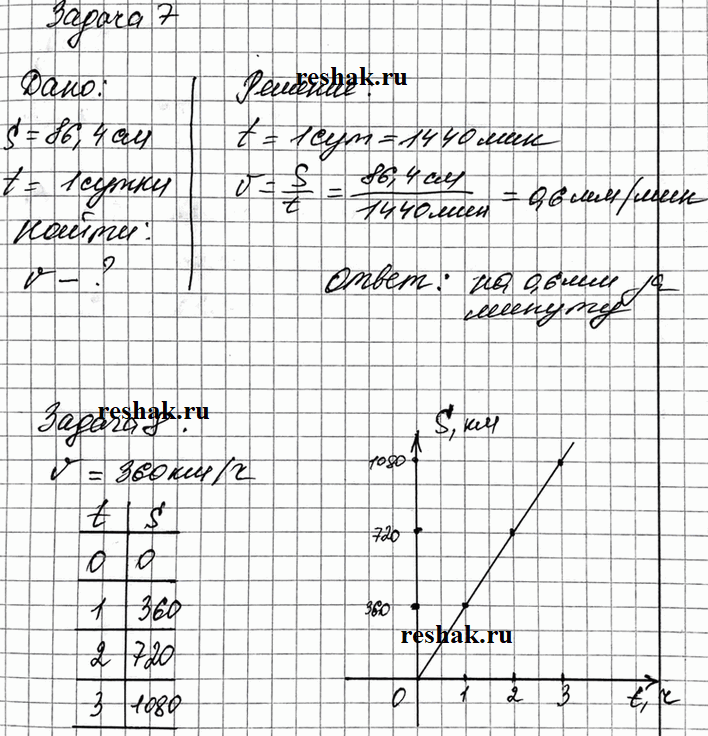 Задача 7
reshak.ru
Дано:
S = 86,4 см
t = 1 сутки
Найти:
v - ?
Решение:
t = 1 сут = 1440 мин
v = S/t = 86,4 см/1440 мин = 0,6 мм/мин
Ответ: на 0,6 мм за
минуту
reshak.ru
Задача 8:
v = 360 км/ч
t S
0 0
1 360
2 720
3 1080
S, км
1080
720
360
reshak.ru
0 1 2 3 t, ч